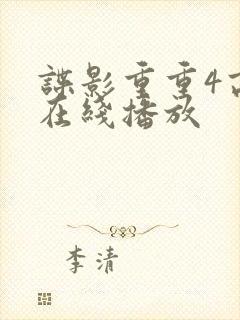 諜影重重4高
在綫播放
李清